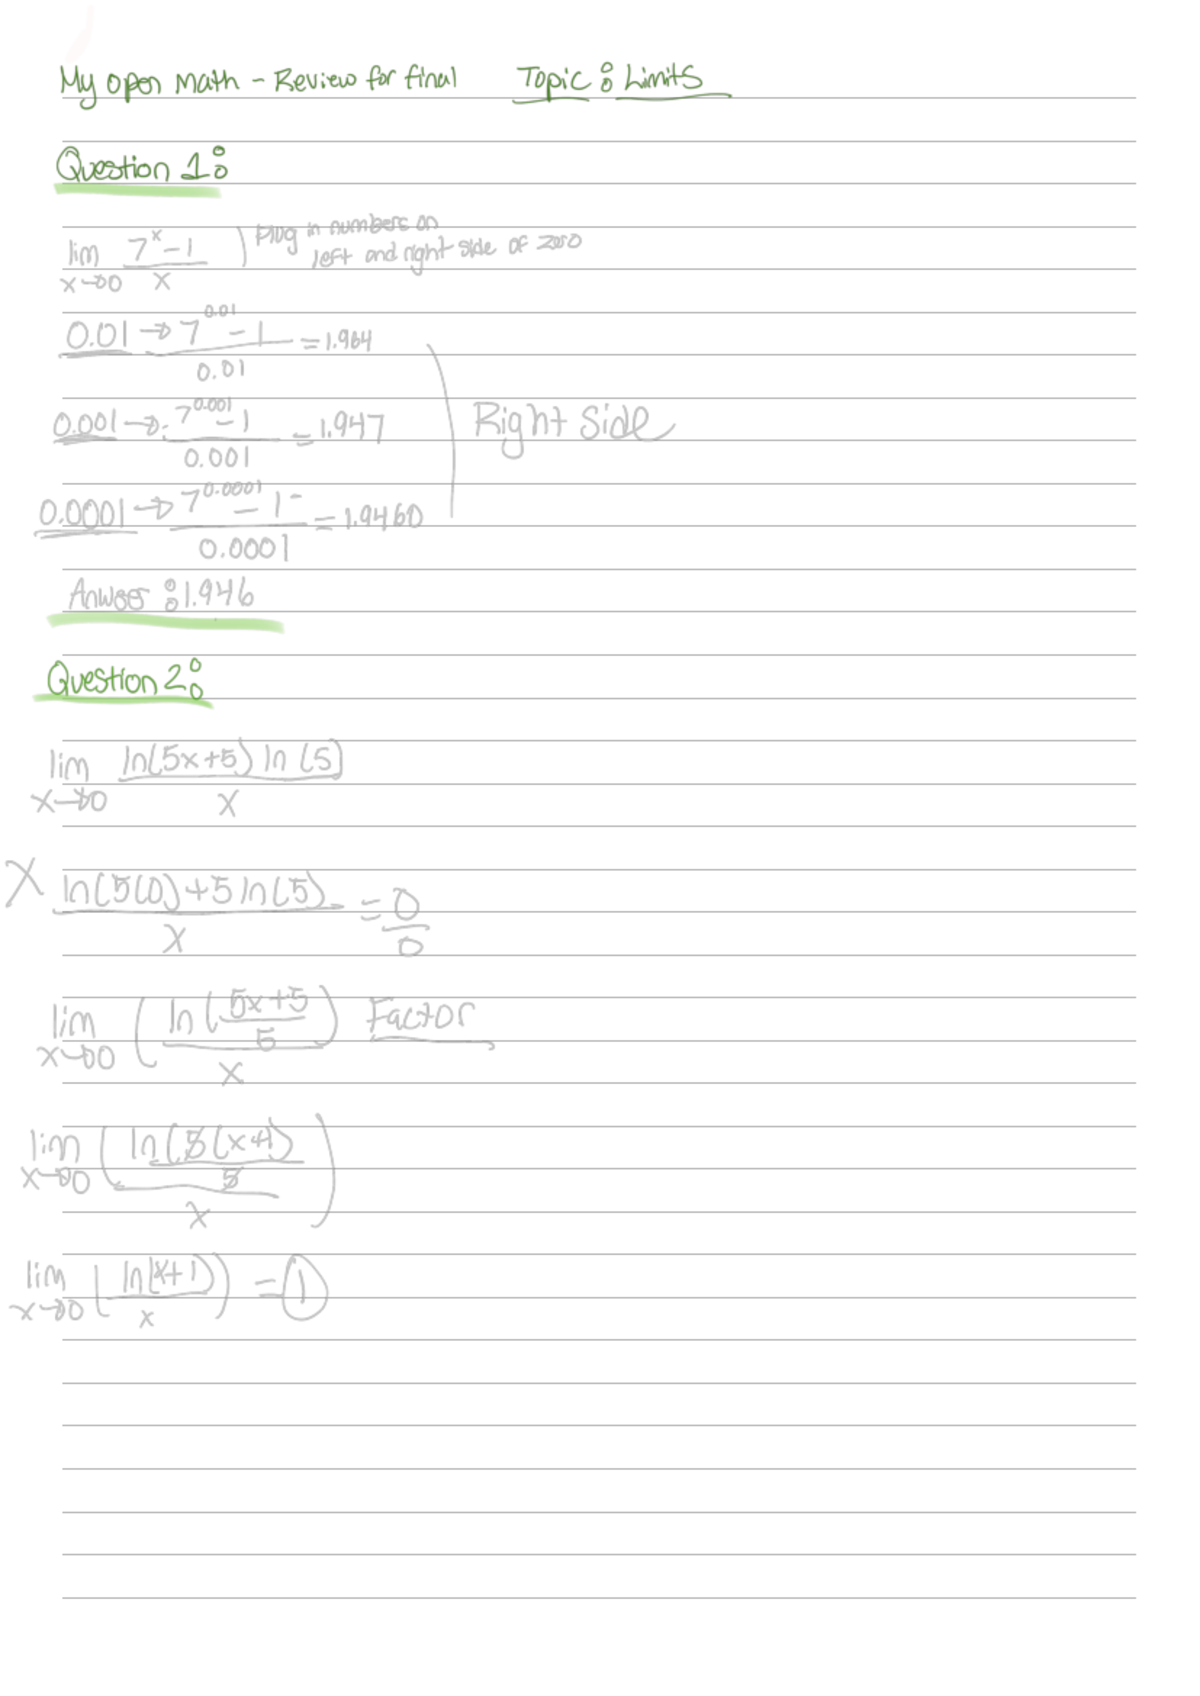 My open Math - Review for final Topic: Limits
Question 1:
lim x→0 (7^x - 1)/x ) Plug in numbers on
left and right side of zero
0.01 → (7^0.01 - 1)/0.01 = 1.964
0.001 → (7^0.001 - 1)/0.001 = 1.947
Right Side
0.0001 → (7^0.0001 - 1)/0.0001 = 1.9460
Anwser: 1.946
Question 2:
lim x→0 (ln(5x+5) ln(5))/x
X (ln(5(0)+5 ln(5))/x = 0/0
lim x→0 (ln((5x+5)/5)/x) Factor
lim x→0 (ln(5(x+1)/5)/x)
lim x→0 (ln(x+1)/x) = 1